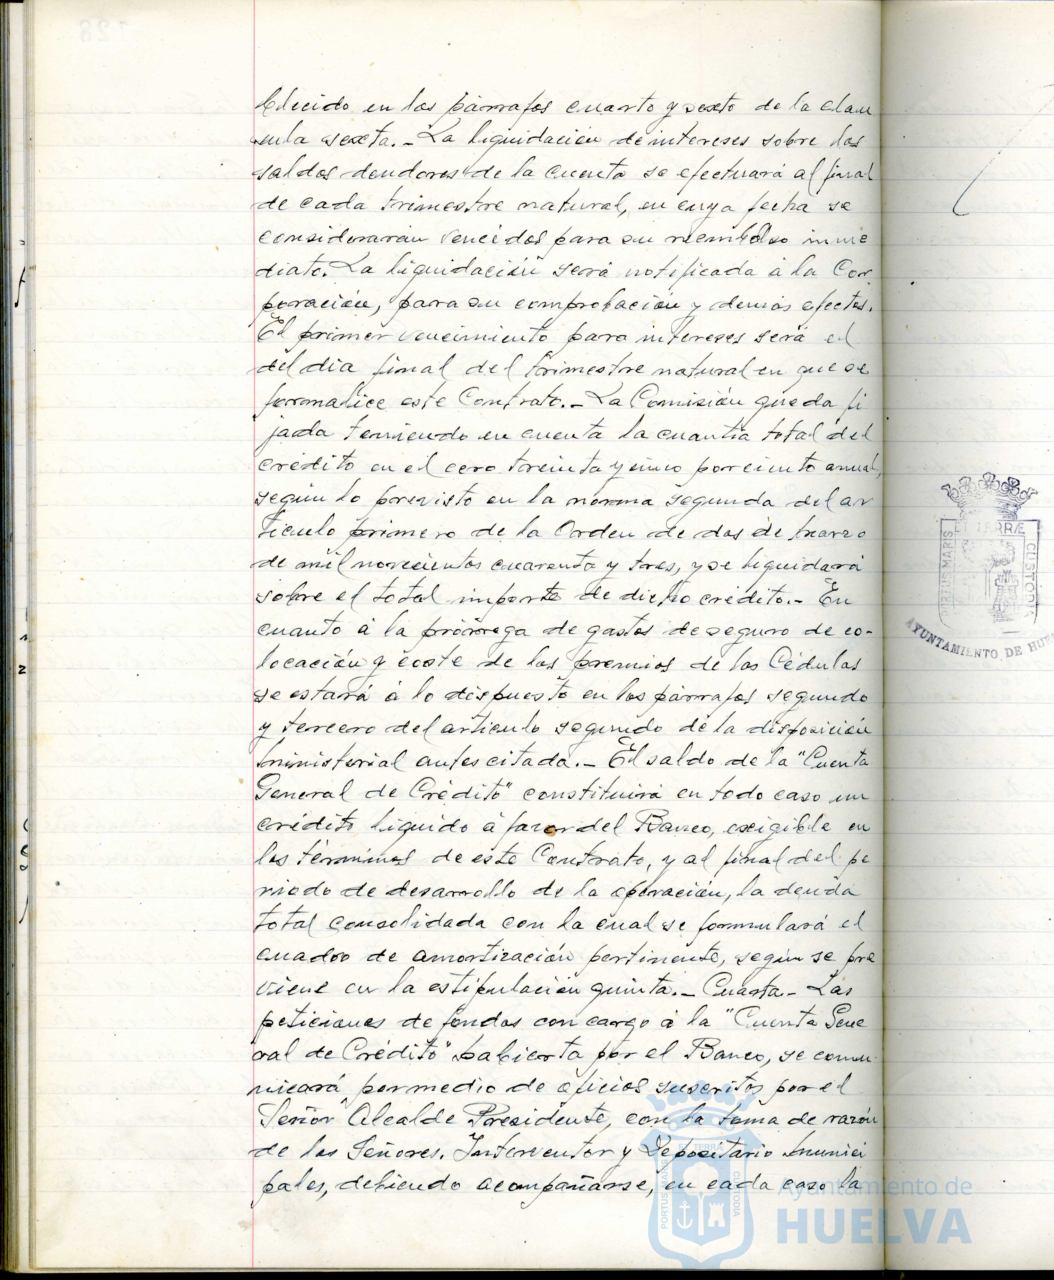 blecido en los párrafos cuarto y sexto de la clau
sula sexta.- La liquidación de intereses sobre los
saldos deudores de la cuenta se efectuará al final
de cada trimestre natural, en cuya fecha se
considerarán vencidos para su reembolso inme
diato. La liquidación será notificada á la Cor
poración, para su comprobación y demás efectos.
El primer vencimiento para intereses será el
del dia final del trimestre natural en que se
formalice este Contrato.- La Comisión queda fi
jada teniendo en cuenta la cuantía total del
crédito en el cero treinta y cinco por ciento anual,
según lo previsto en la norma segunda del ar
tículo primero de la Orden de dos de marzo
de mil novecientos cuarenta y tres, y se liquidará
sobre el total importe de dicho crédito.- En
cuanto á la prórroga de gastos de seguro de co-
locación y coste de los premios de las Cédulas
se estará á lo dispuesto en los párrafos segundo
y tercero del artículo segundo de la disposición
ministerial antes citada.- El saldo de la "Cuenta
General de Crédito" constituirá en todo caso un
crédito líquido á favor del Banco, exigible en
los términos de este Contrato, y al final del pe
riodo de desarrollo de la operación, la deuda
total consolidada con la cual se formulará el
cuadro de amortización pertinente, según se pre
viene en la estipulación quinta.- Cuarta- Las
peticiones de fondos con cargo á la "Cuenta Gene
ral de Crédito" abierta por el Banco, se comu-
nicará por medio de oficios suscritos por el
Señor Alcalde Presidente, con la toma de razón
de los Señores. Interventor y Depositario munici
pales, debiendo acompañarse, en cada caso la
PORTUS MARIS
ET TERRÆ
CUSTODIA
AYUNTAMIENTO DE HUE
Ayuntamiento de
HUELVA